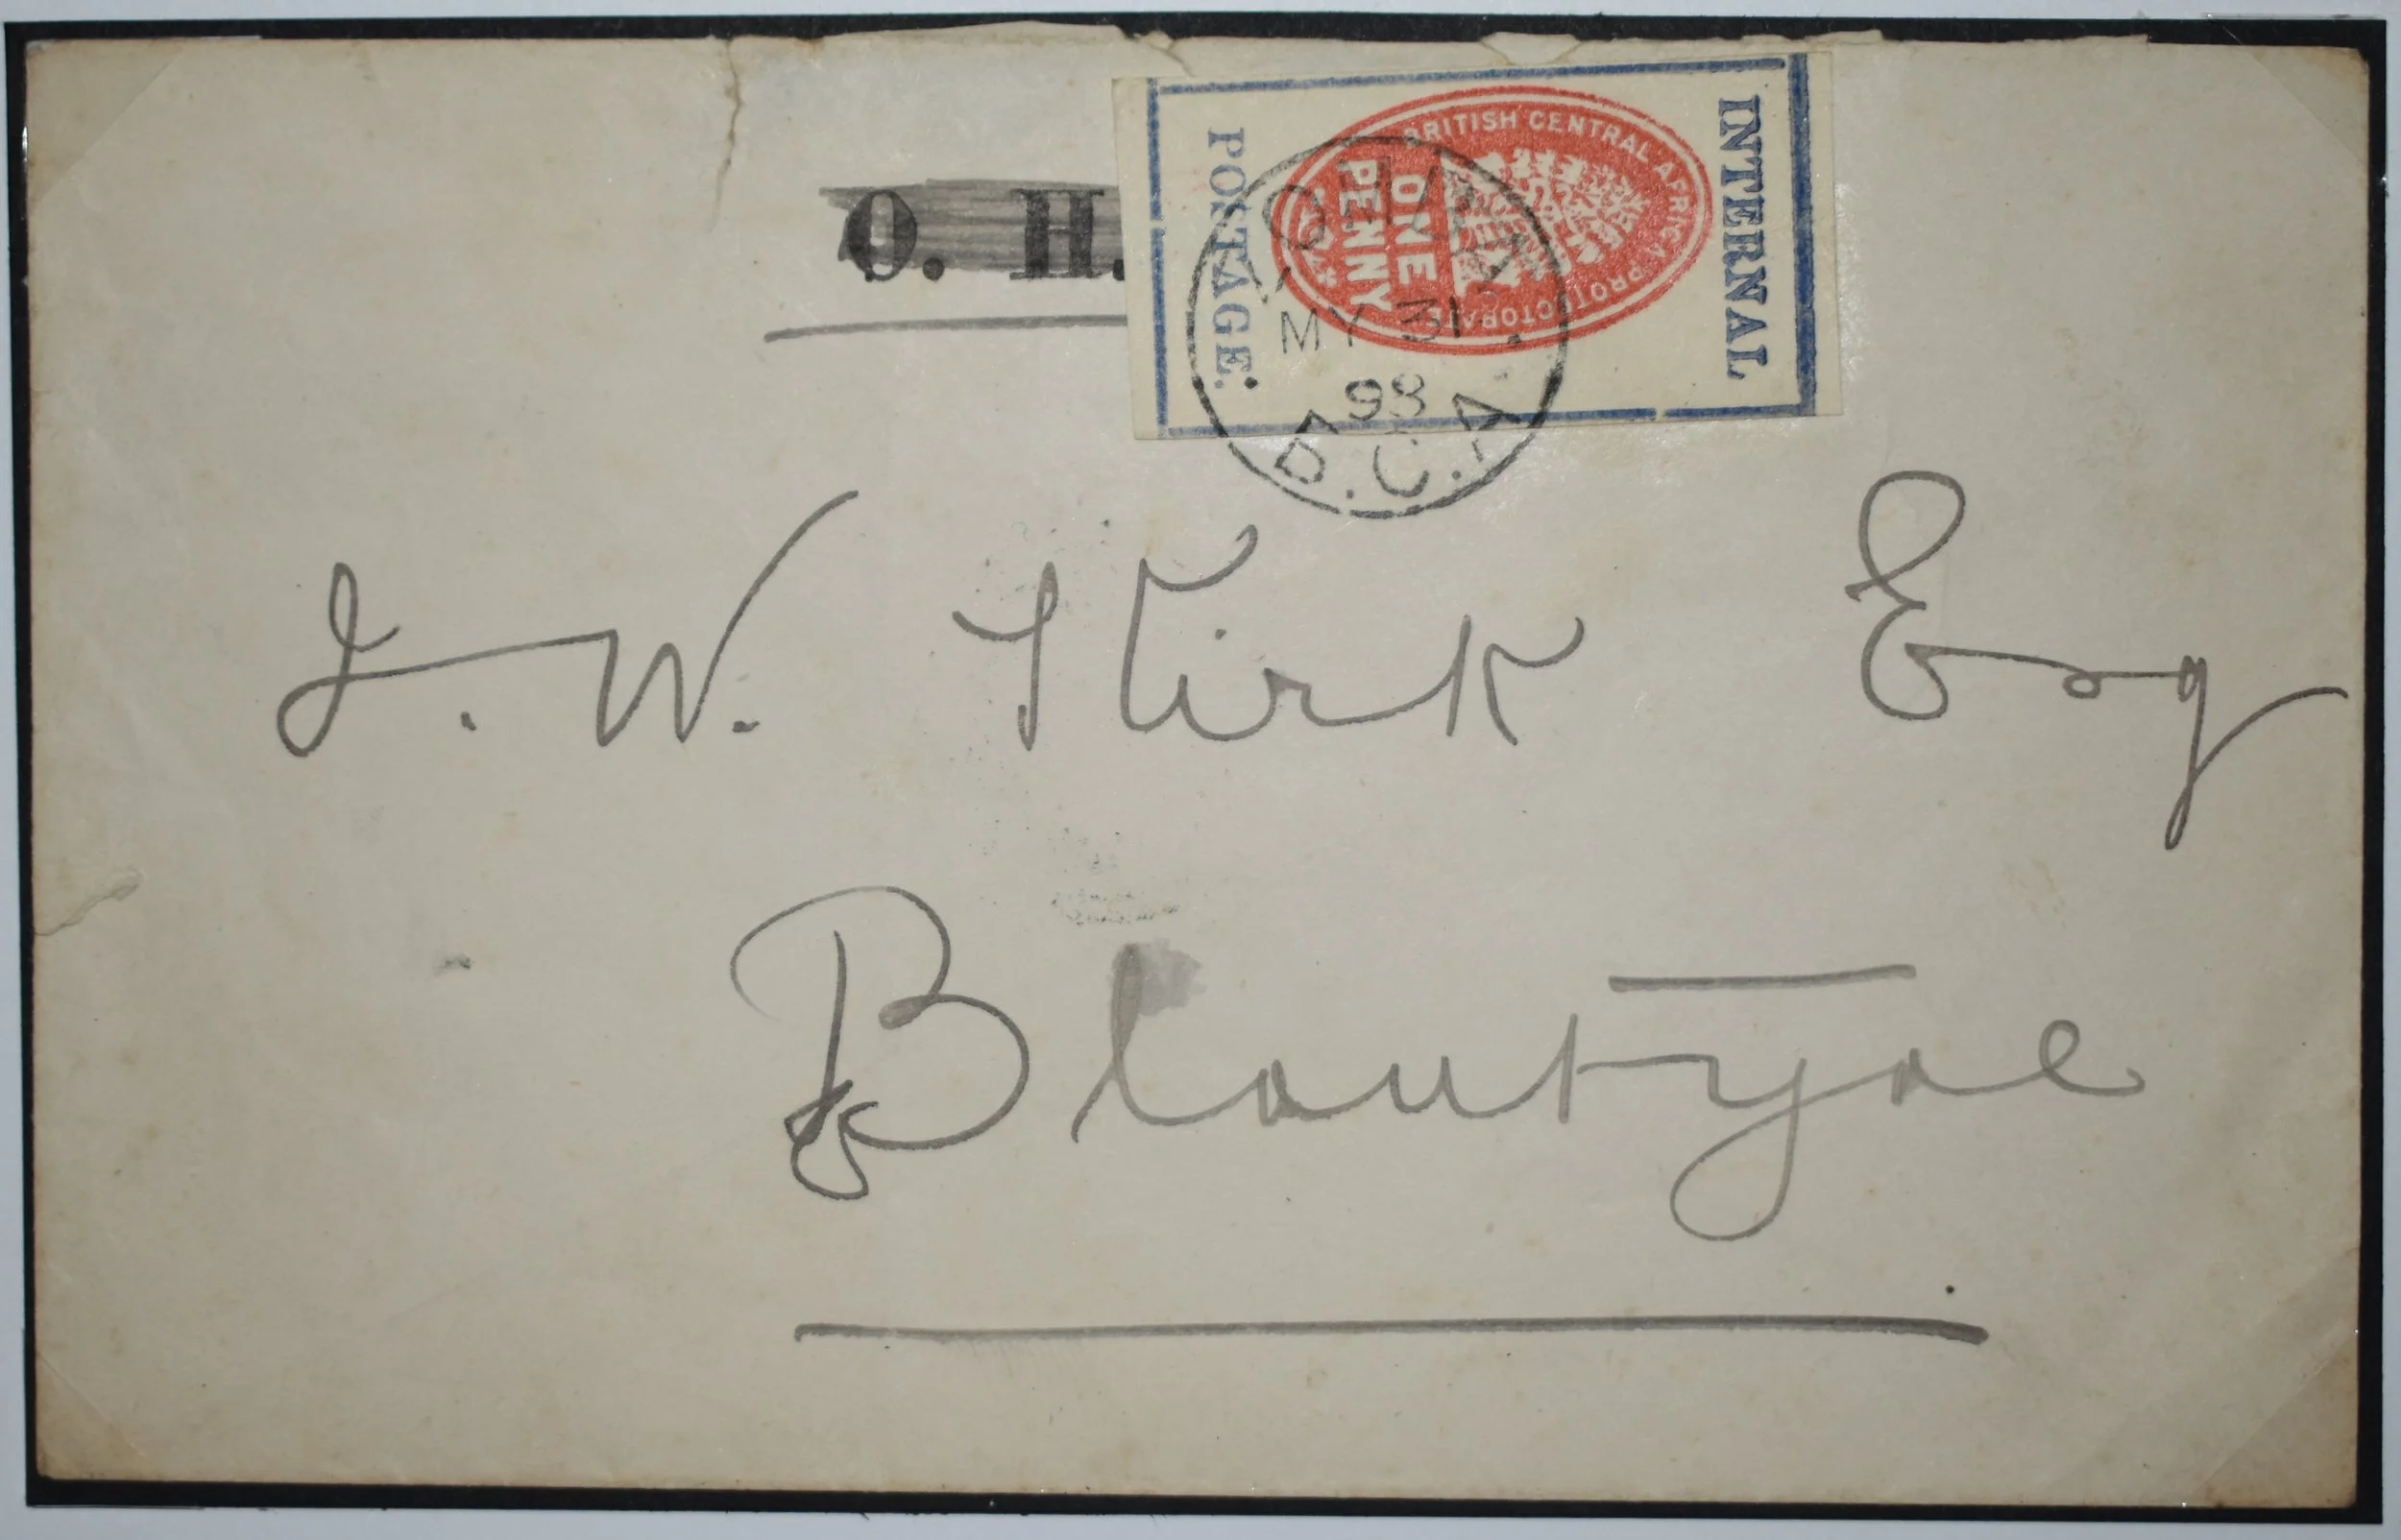 O. H.
INTERNAL
BRITISH CENTRAL AFRICA PROTECTORATE
ONE
PENNY
POSTAGE.
MY 31
98
B.C.A
J. W. Kirk Esq
Blantyre